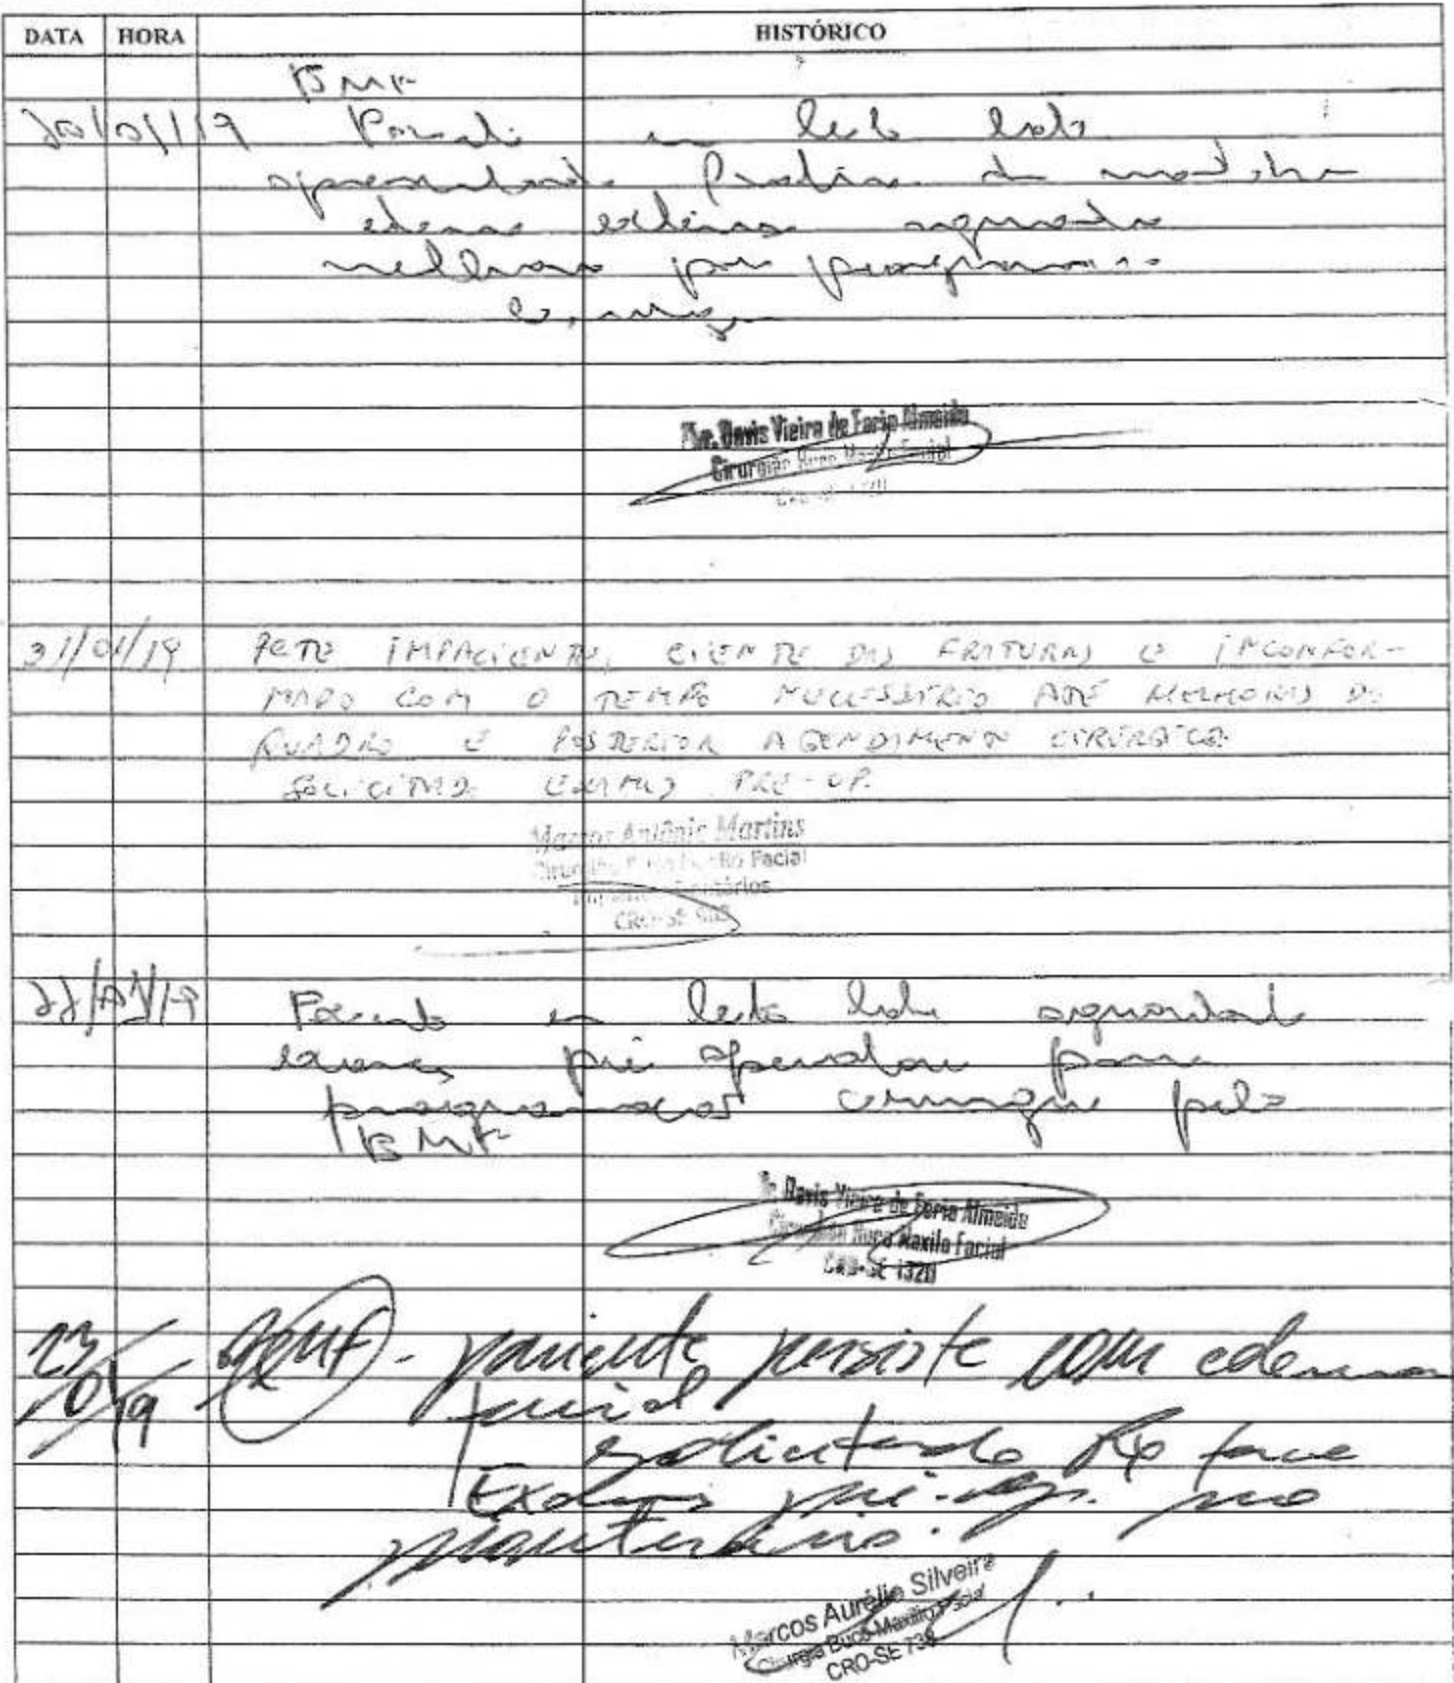 DATA HORA HISTÓRICO
BMF
20/01/19 Paciente em leito
apresentando fratura de
edema extenso aguarda
melhora para programar
Dr. Davis Vieira de Faria Almeida
Cirurgião Buco Maxilo Facial
CRO-SE 1320
21/01/19 PCTE IMPACIENTE, CIENTE DAS FRATURAS E INCONFOR-
MADO COM O TEMPO NECESSÁRIO ATÉ MELHORAS DO
QUADRO E POSTERIOR AGENDAMENTO CIRÚRGICO.
SOLICITADO EXAMES PRÉ-OP.
Marcos Antônio Martins
Facial
CRO-SE
22/01/19 Paciente em leito aguardando
exames pré operatório para
programação cirurgia pela
BMF
Dr. Davis Vieira de Faria Almeida
Cirurgião Buco Maxilo Facial
CRO-SE 1320
23/01/19 BMF - paciente persiste com edema
facial.
solicitado Rx face
Exames pré-op. no
prontuário.
Marcos Aurélio Silveira
Cirurgia Buco-Maxilo Facial
CRO-SE 738